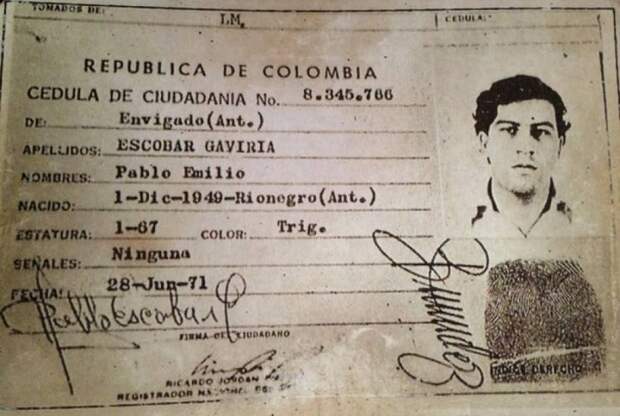 TOMADOS DE: LM. CEDULA:
REPUBLICA DE COLOMBIA
CEDULA DE CIUDADANIA No. 8.345.766
DE: Envigado(Ant.)
APELLIDOS: ESCOBAR GAVIRIA
NOMBRES: Pablo Emilio
NACIDO: 1-Dic-1949-Rionegro(Ant.)
ESTATURA: 1-67 COLOR: Trig.
SEÑALES: Ninguna
FECHA: 28-Jun-71
Pablo Escobar G
FIRMA DEL CIUDADANO
INDICE DERECHO
RICARDO JORDAN
REGISTRADOR NACIONAL DEL